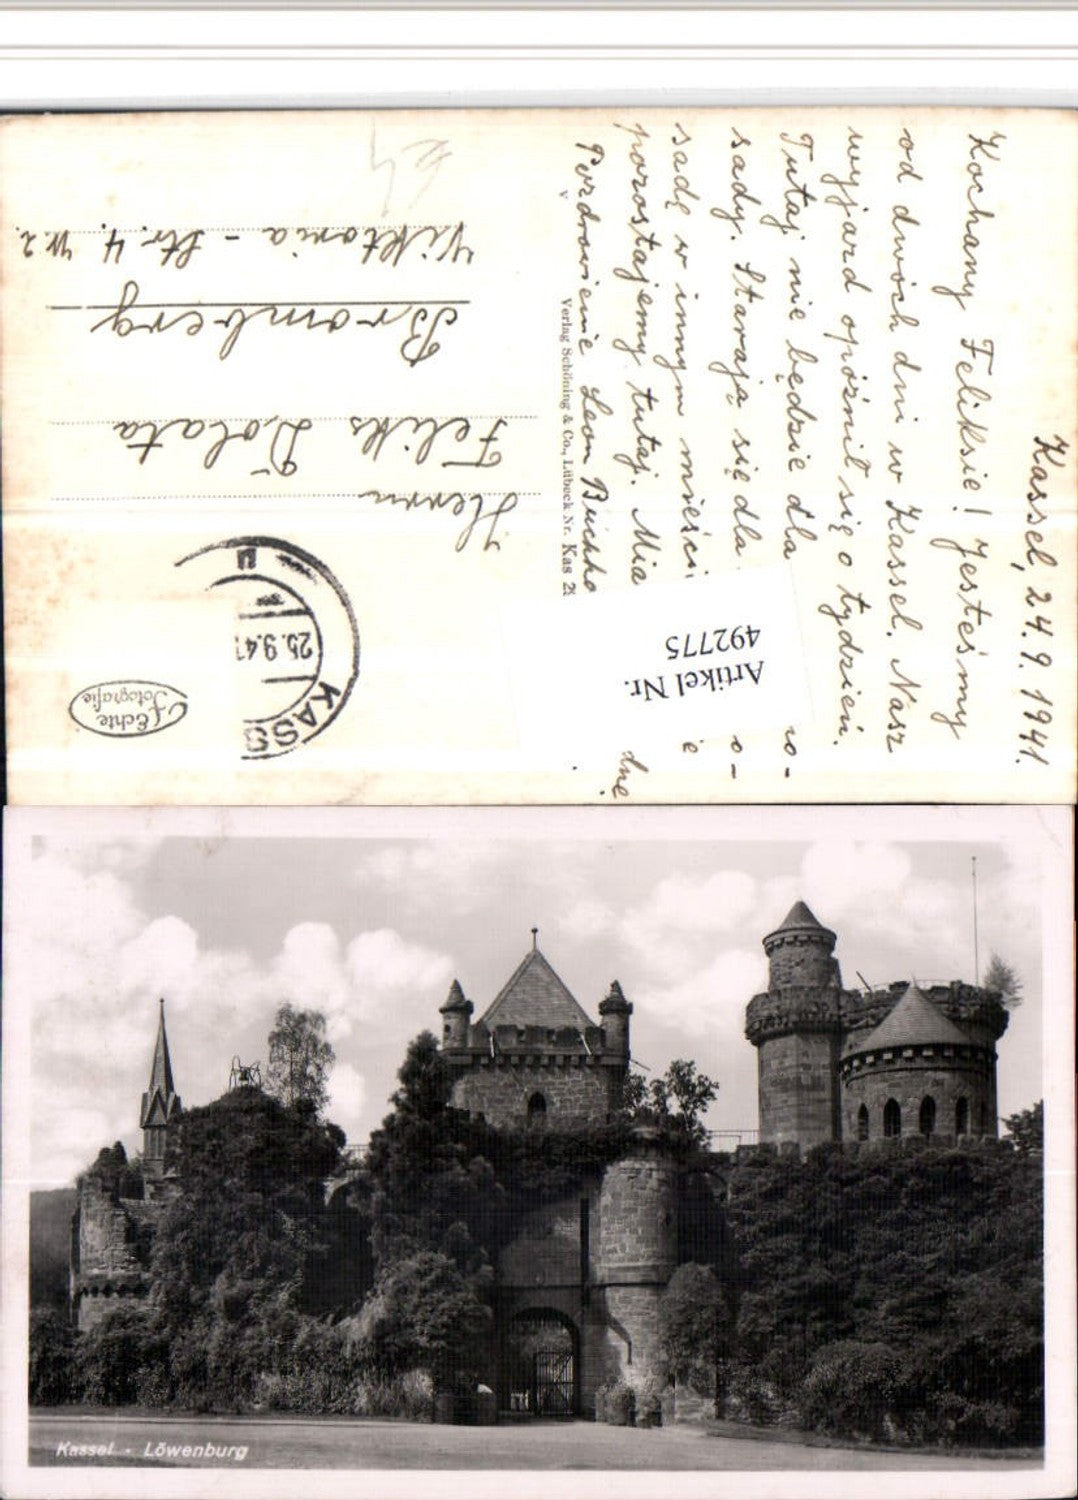 Kassel, 24.9.1941.
Kochany Feliksie! Jesteśmy
od dwóch dni w Kassel. Nasz
wyjazd opóźnił się o tydzień.
Tutaj nie będzie dla
sady. Starają się dla o-
sadę w innym
pozostajemy tutaj.
Pozdrowienie Leon
Verlag Schöning & Co., Lübeck Nr. Kas
Herrn
Feliks Dolata
Bromberg
Viktoria-Str. 4. W2.
KASS
25.9.41
u
Echte
Fotografie
Artikel Nr.
492775
Kassel - Löwenburg